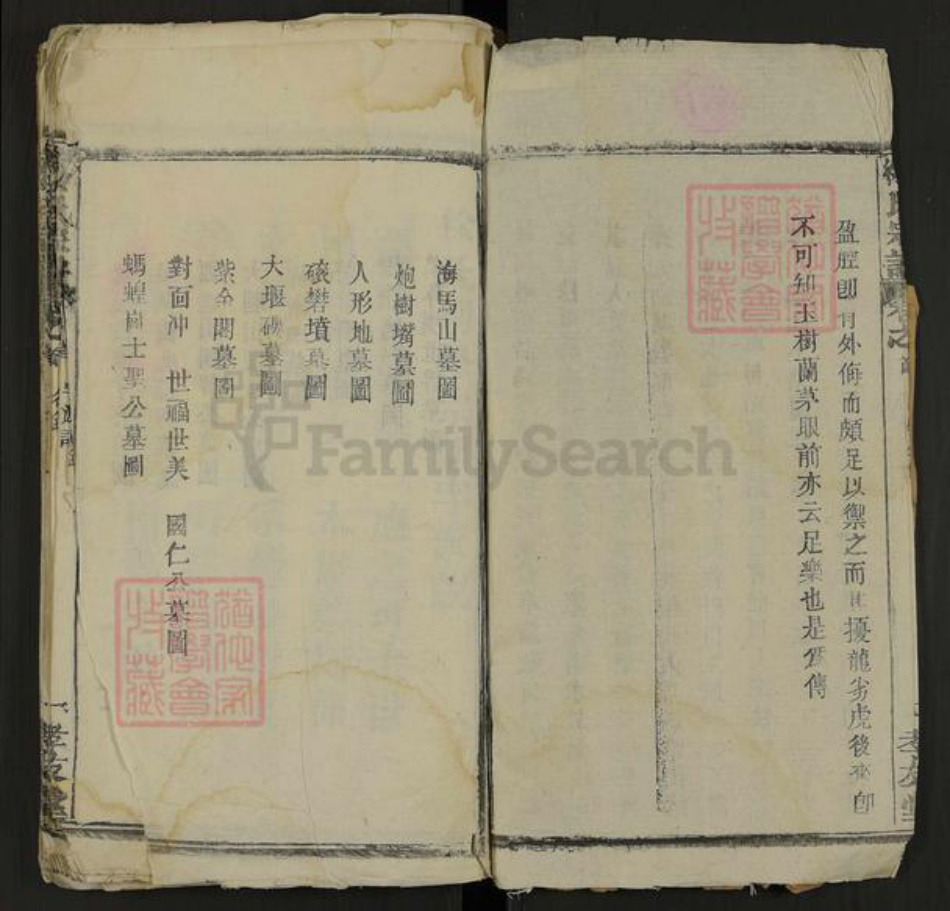 盈膛即 外侮而頗足以禦之而 擾龍劣虎後來卽
不可知玉樹蘭茅眼前亦云足樂也是爲傳
海馬山墓圖
炮樹嘴墓圖
人形地墓圖
礬墳墓圖
大堰 墓圖
紫金閣墓圖
對面冲 世福世美 國仁公墓圖
螞蝗 士聖公墓圖
孝友堂
孝友堂
譜學會
收藏
譜學會
收藏
FamilySearch